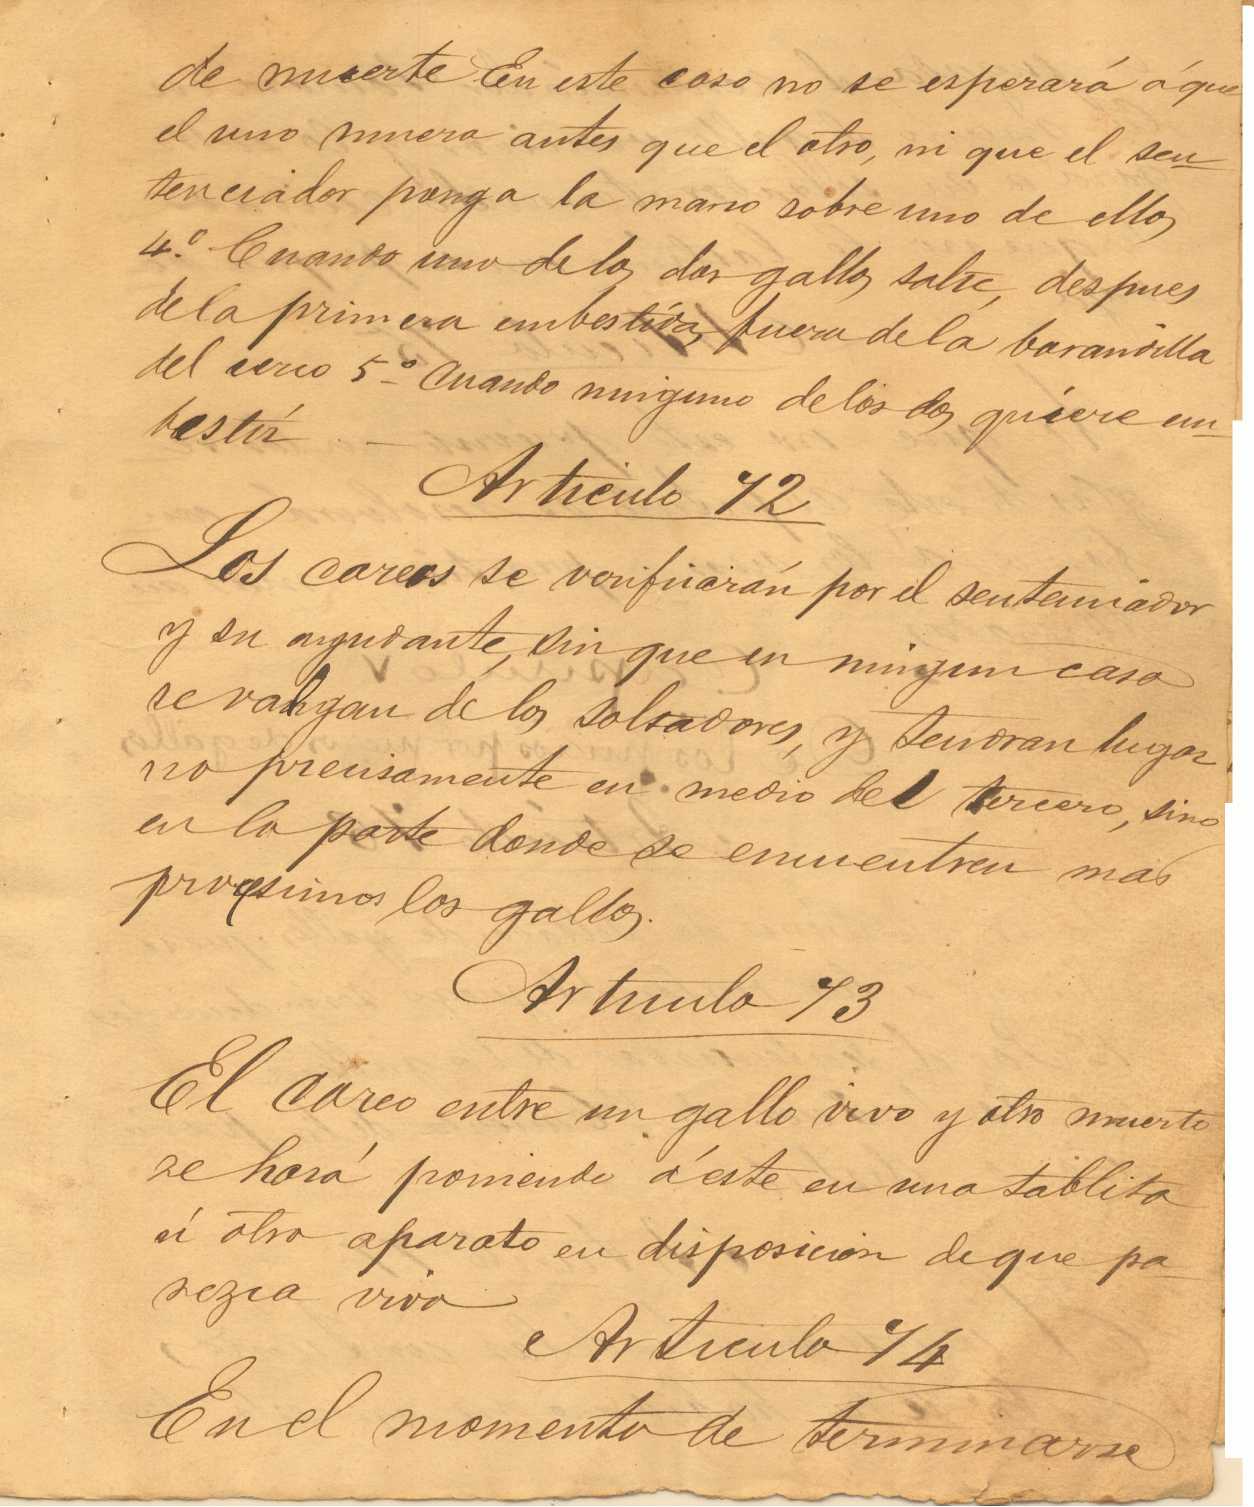 de muerte En este caso no se esperará á que
el uno muera antes que el otro, ni que el sen-
tenciador ponga la mano sobre uno de ellos
4.º Cuando uno de los dos gallos salte, despues
de la primera embestida, fuera de la barandilla
del cerco 5º Cuando ninguno de los dos quiere em-
bestir
Articulo 72
Los careos se verificarán por el sentenciador
y su ayudante, sin que en ningun caso
se valgan de los soltadores, y tendran lugar
no precisamente en medio del tercero, sino
en la parte donde se encuentren mas
procsimos los gallos.
Articulo 73
El careo entre un gallo vivo y otro muerto
se hará poniendo á este en una tablita
ú otro aparato en disposicion de que pa-
rezca vivo
Articulo 74
En el momento de terminarse